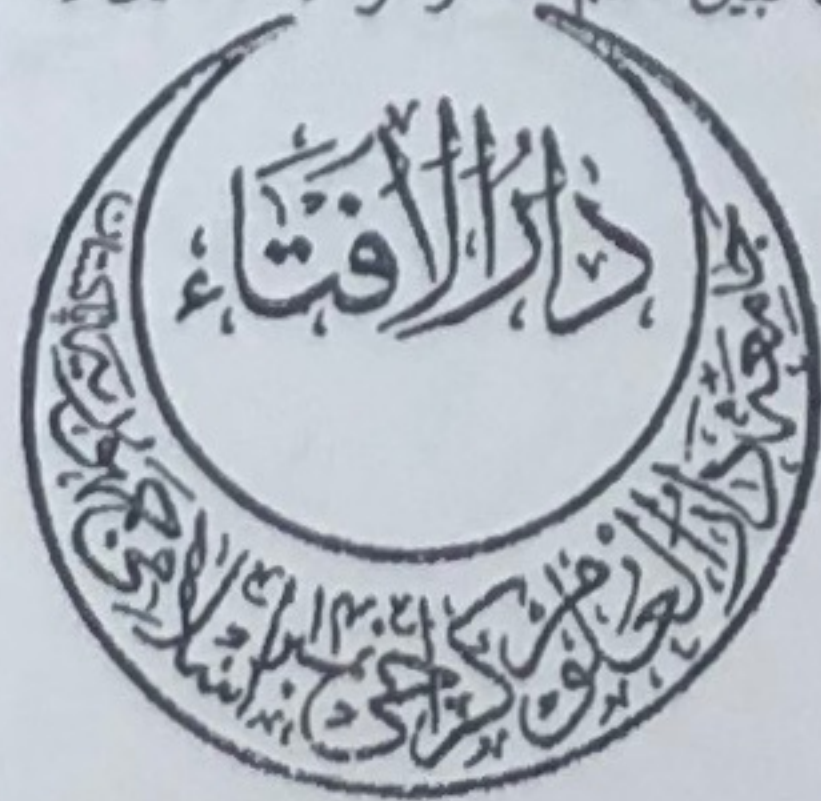 دَارُالْاِفْتَاء
جامعہ دارالعلوم کراچی نمبر ۱۴ اسلامی جمہوریہ پاکستان